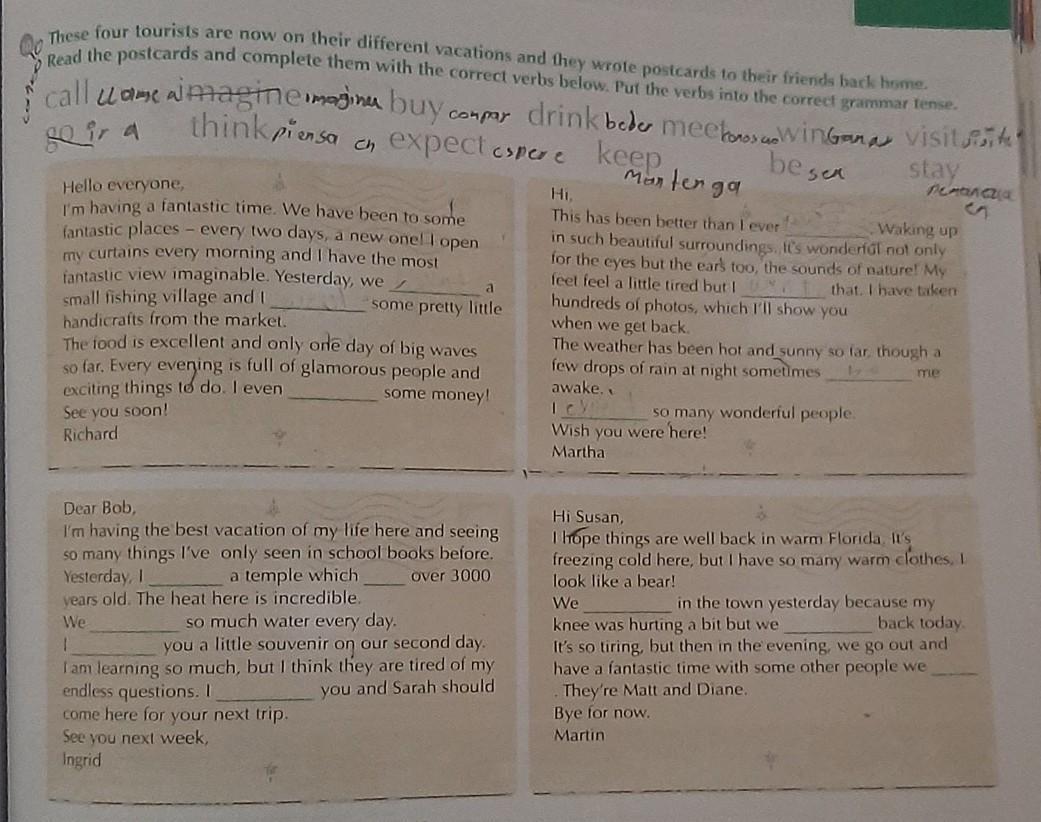 These four tourists are now on their different vacations and they wrote postcards to their friends back home.
Read the postcards and complete them with the correct verbs below. Put the verbs into the correct grammar tense.
call llame a imagine imaginar buy compar drink beber meet win Ganar visit
go ir a think piensa en expect espere keep Mantenga be ser stay
Hello everyone,
I'm having a fantastic time. We have been to some
fantastic places – every two days, a new one! I open
my curtains every morning and I have the most
fantastic view imaginable. Yesterday, we ________ a
small fishing village and I ________ some pretty little
handicrafts from the market.
The food is excellent and only one day of big waves
so far. Every evening is full of glamorous people and
exciting things to do. I even ________ some money!
See you soon!
Richard
Hi,
This has been better than I ever ________. Waking up
in such beautiful surroundings. It's wonderful not only
for the eyes but the ears too, the sounds of nature! My
feet feel a little tired but I ________ that. I have taken
hundreds of photos, which I'll show you
when we get back.
The weather has been hot and sunny so far, though a
few drops of rain at night sometimes ________ me
awake.
I ________ so many wonderful people.
Wish you were here!
Martha
Dear Bob,
I'm having the best vacation of my life here and seeing
so many things I've only seen in school books before.
Yesterday, I ________ a temple which ____ over 3000
years old. The heat here is incredible.
We ________ so much water every day.
I ________ you a little souvenir on our second day.
I am learning so much, but I think they are tired of my
endless questions. I ________ you and Sarah should
come here for your next trip.
See you next week,
Ingrid
Hi Susan,
I hope things are well back in warm Florida. It's
freezing cold here, but I have so many warm clothes, I
look like a bear!
We ________ in the town yesterday because my
knee was hurting a bit but we ________ back today.
It's so tiring, but then in the evening, we go out and
have a fantastic time with some other people we ____
. They're Matt and Diane.
Bye for now.
Martin